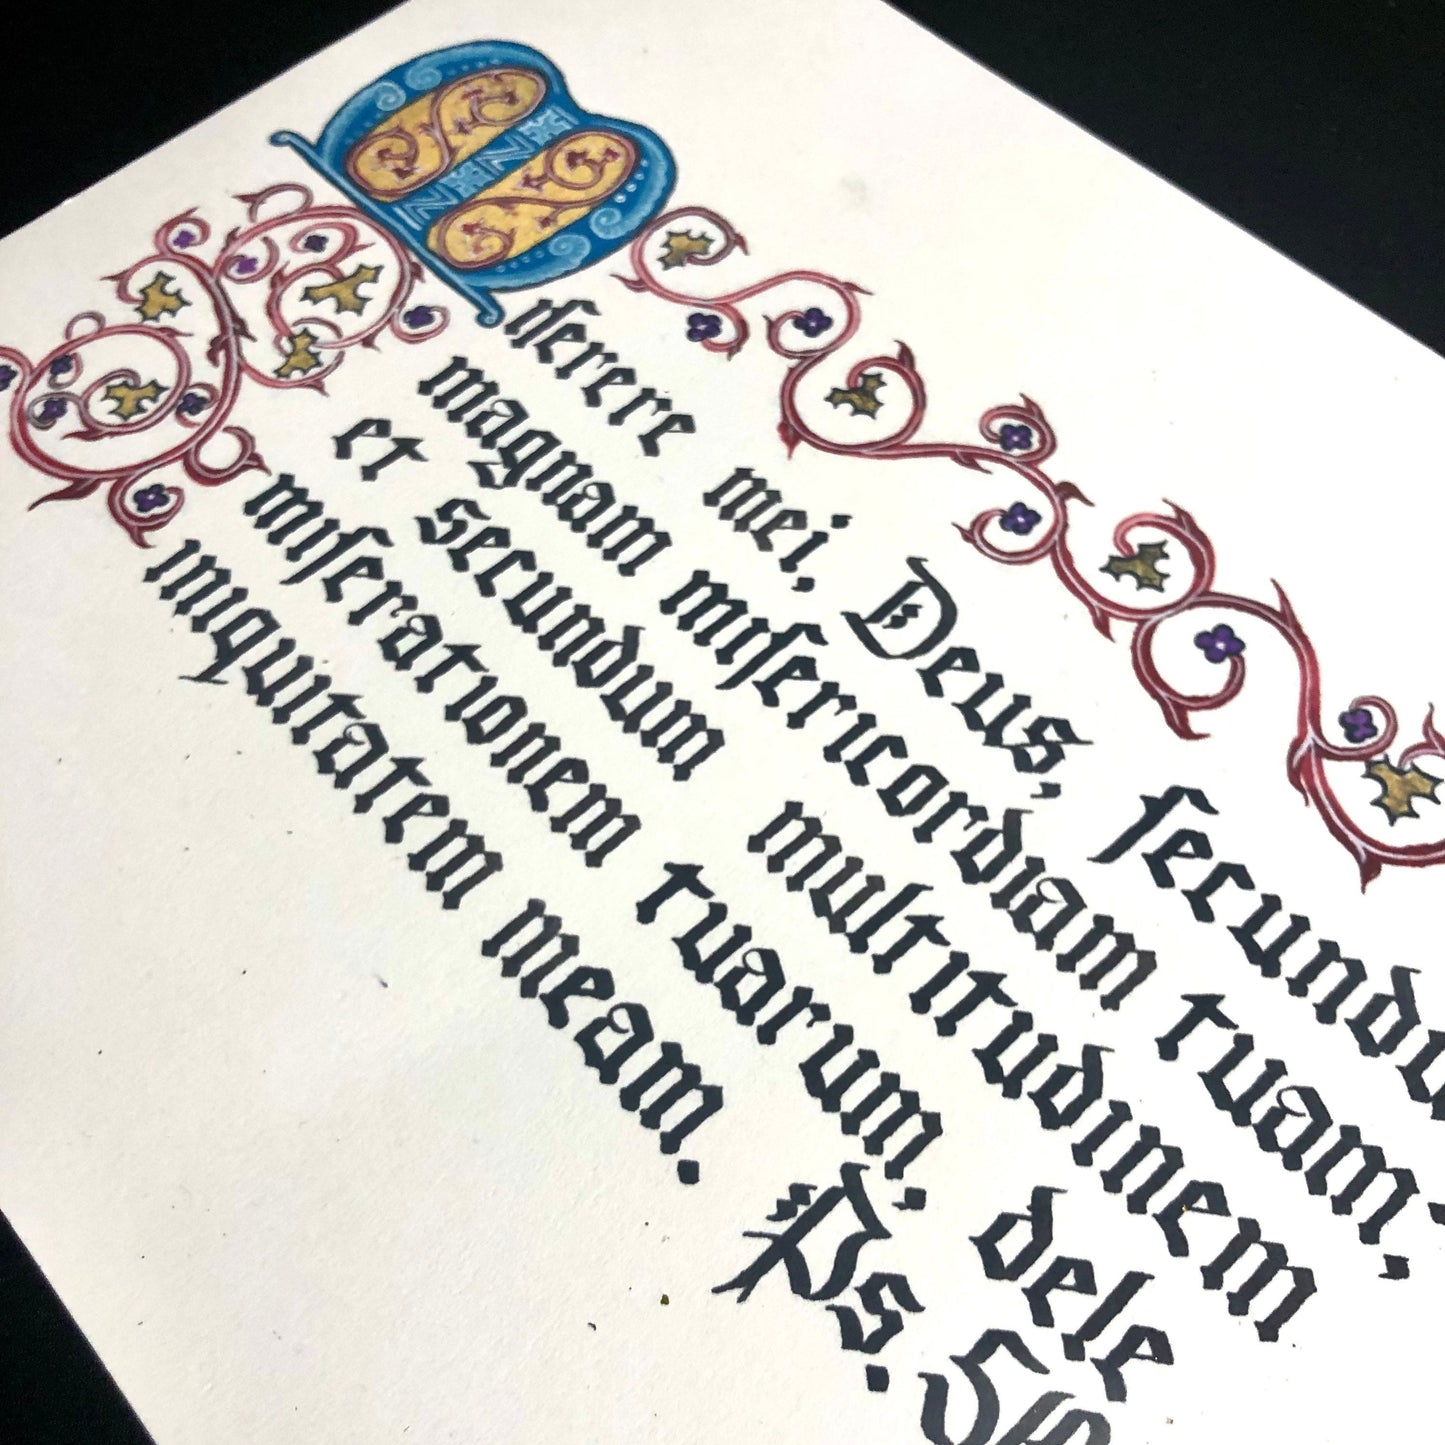 Miſerere mei, Deus, ſecundu
magnam miſericordiam tuam,
et secundum multitudinem
miſerationem tuarum, dele
iniquitatem meam.
Ps.